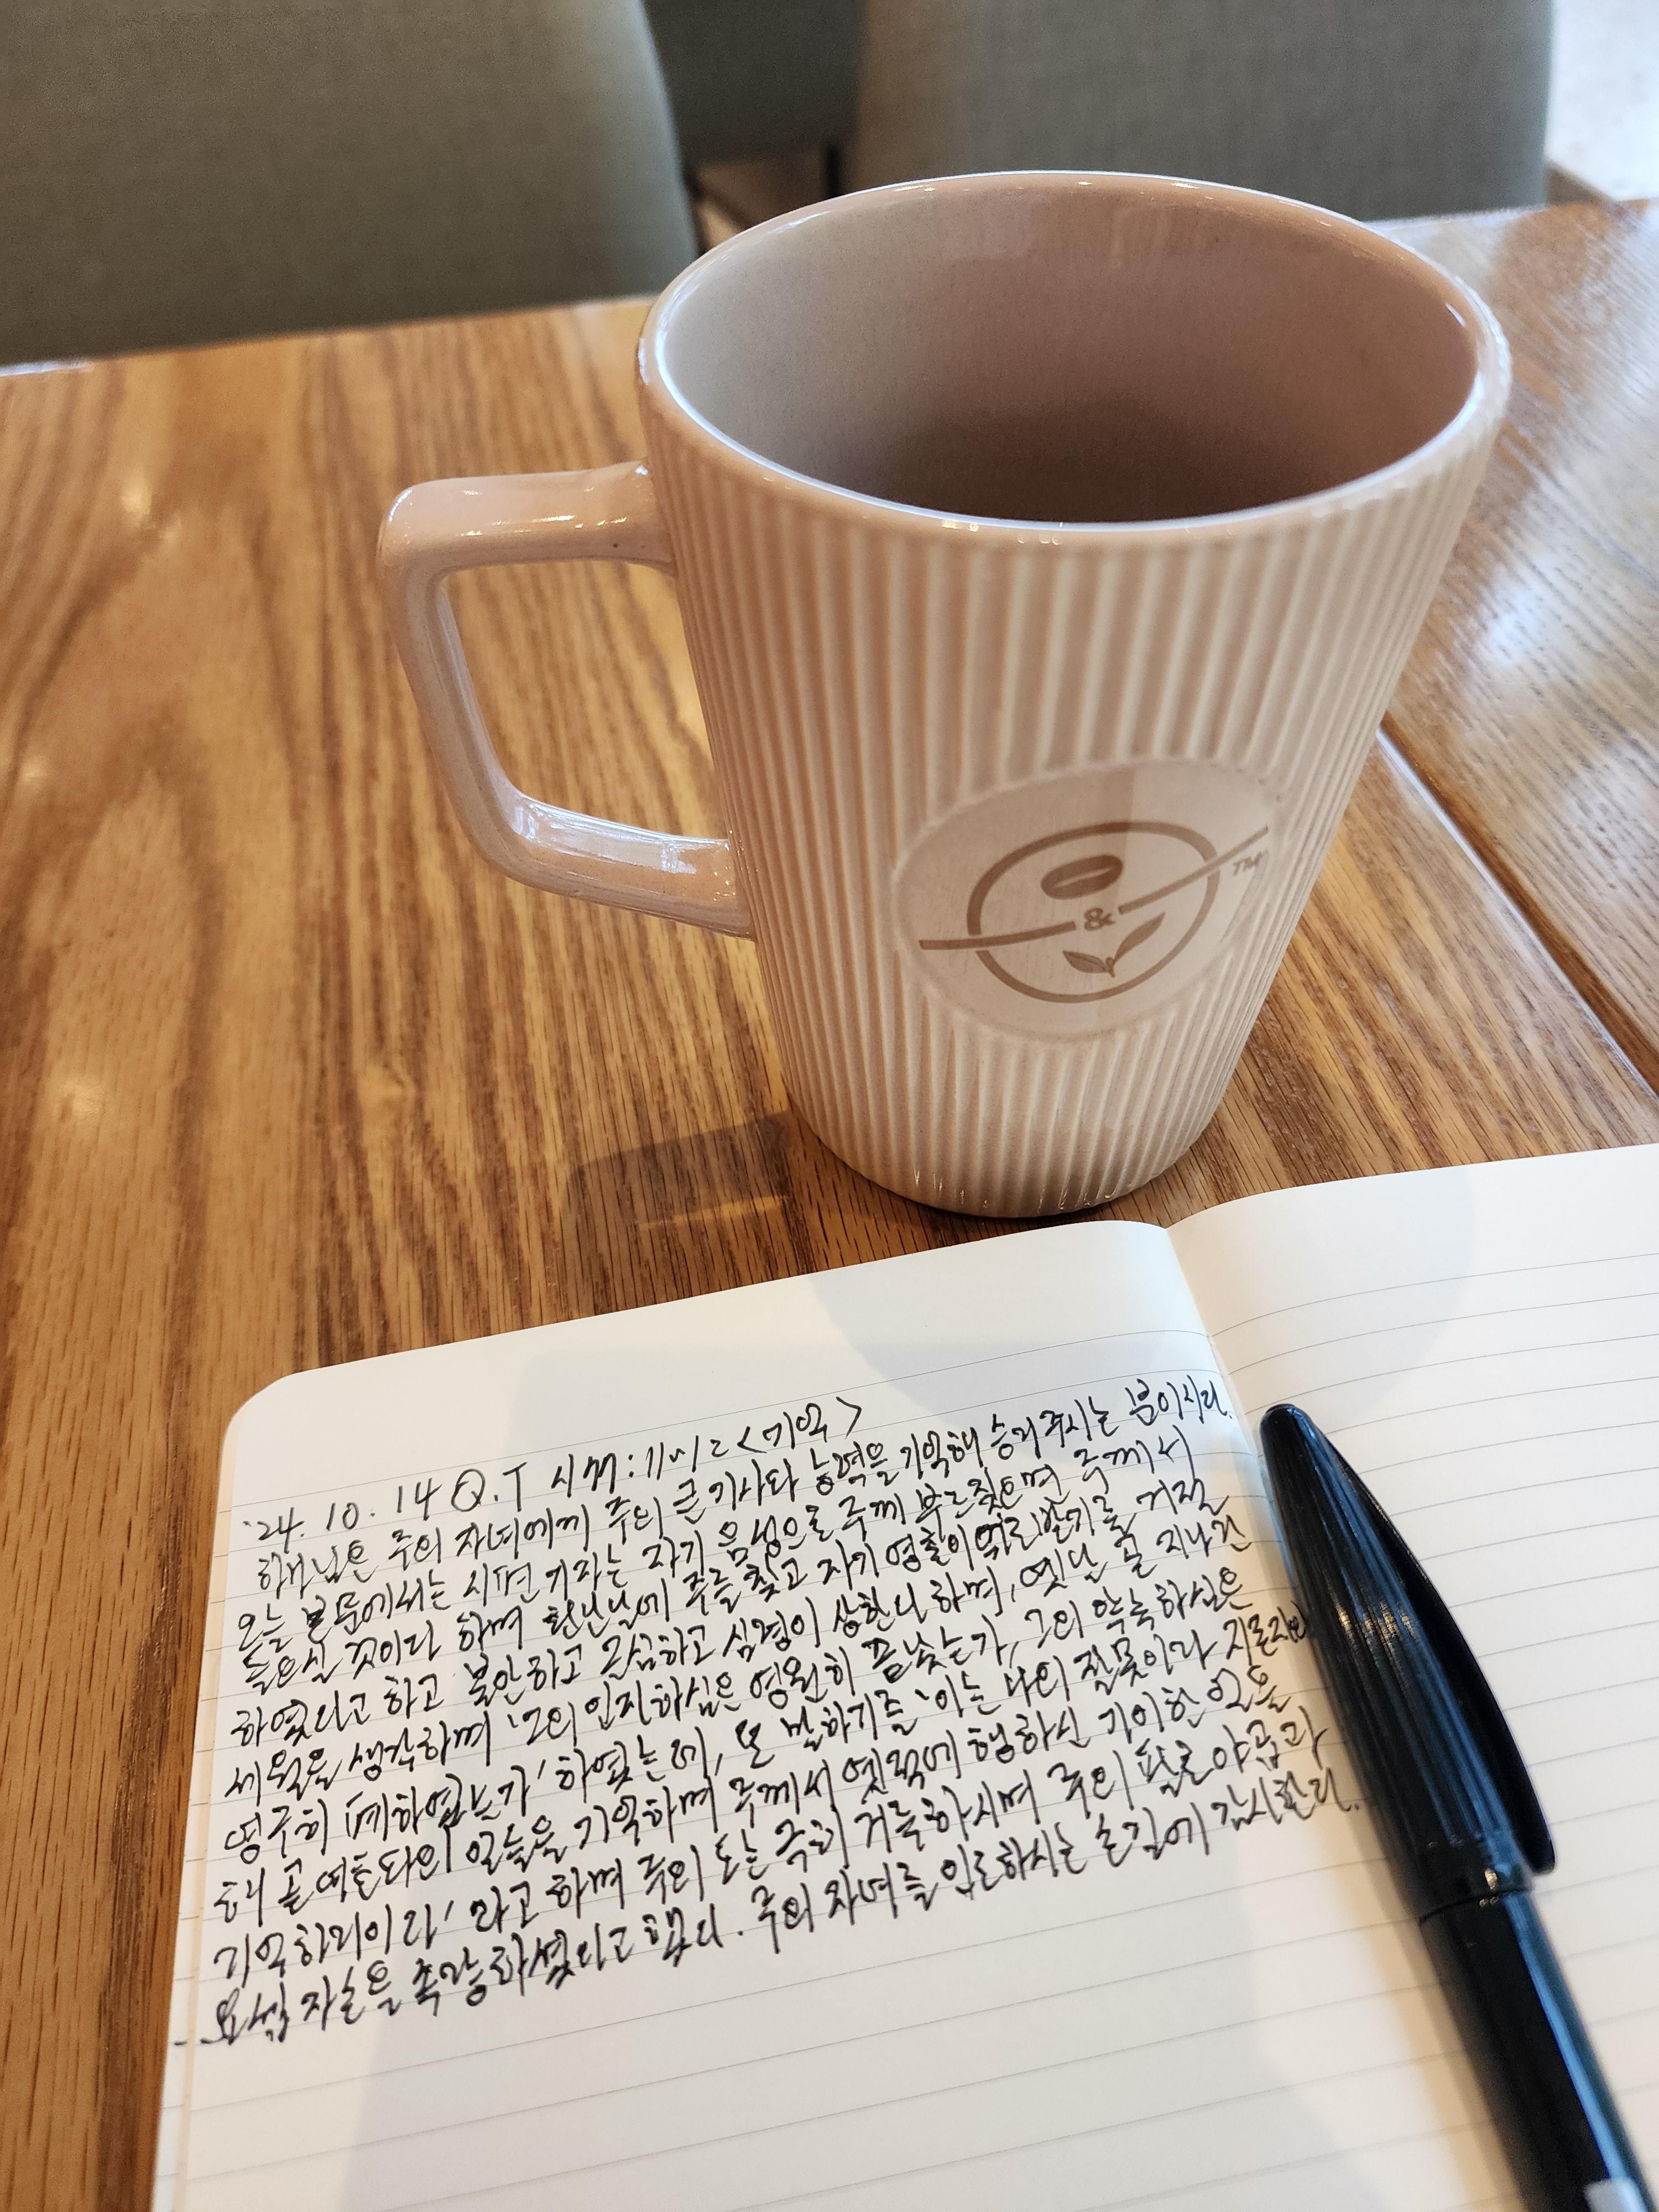 &
TM
'24. 10. 14 Q.T 시77: <기억>
하나님은 주의 자녀에게 주의 큰 기사와 능력을 기억해 승리 주시는 분이시다.
오늘 본문에서는 시편 기자는 자기 음성으로 주께 부르짖으면 주께서
들으실 것이라 하며 환난날에 주를 찾고 자기 영혼이 위로받기를 거절
하였다고 하고 불안하고 근심하고 심령이 상한다 하며, 옛날 곧 지나간
세월을 생각하며 '그의 인자하심은 영원히 끝났는가, 그의 약속하심은
영구히 폐하였는가' 하였는데, 또 말하기를 '이는 나의 잘못이라 지존자의
해 곧 여호와의 일들을 기억하며 주께서 옛적에 행하신 기이한 일을
기억하리이다' 라고 하며 주의 도는 극히 거룩하시며 주의 팔로 야곱과
요셉 자손을 속량하셨다고 했다. 주의 자녀를 위로하시는 손길에 감사한다.